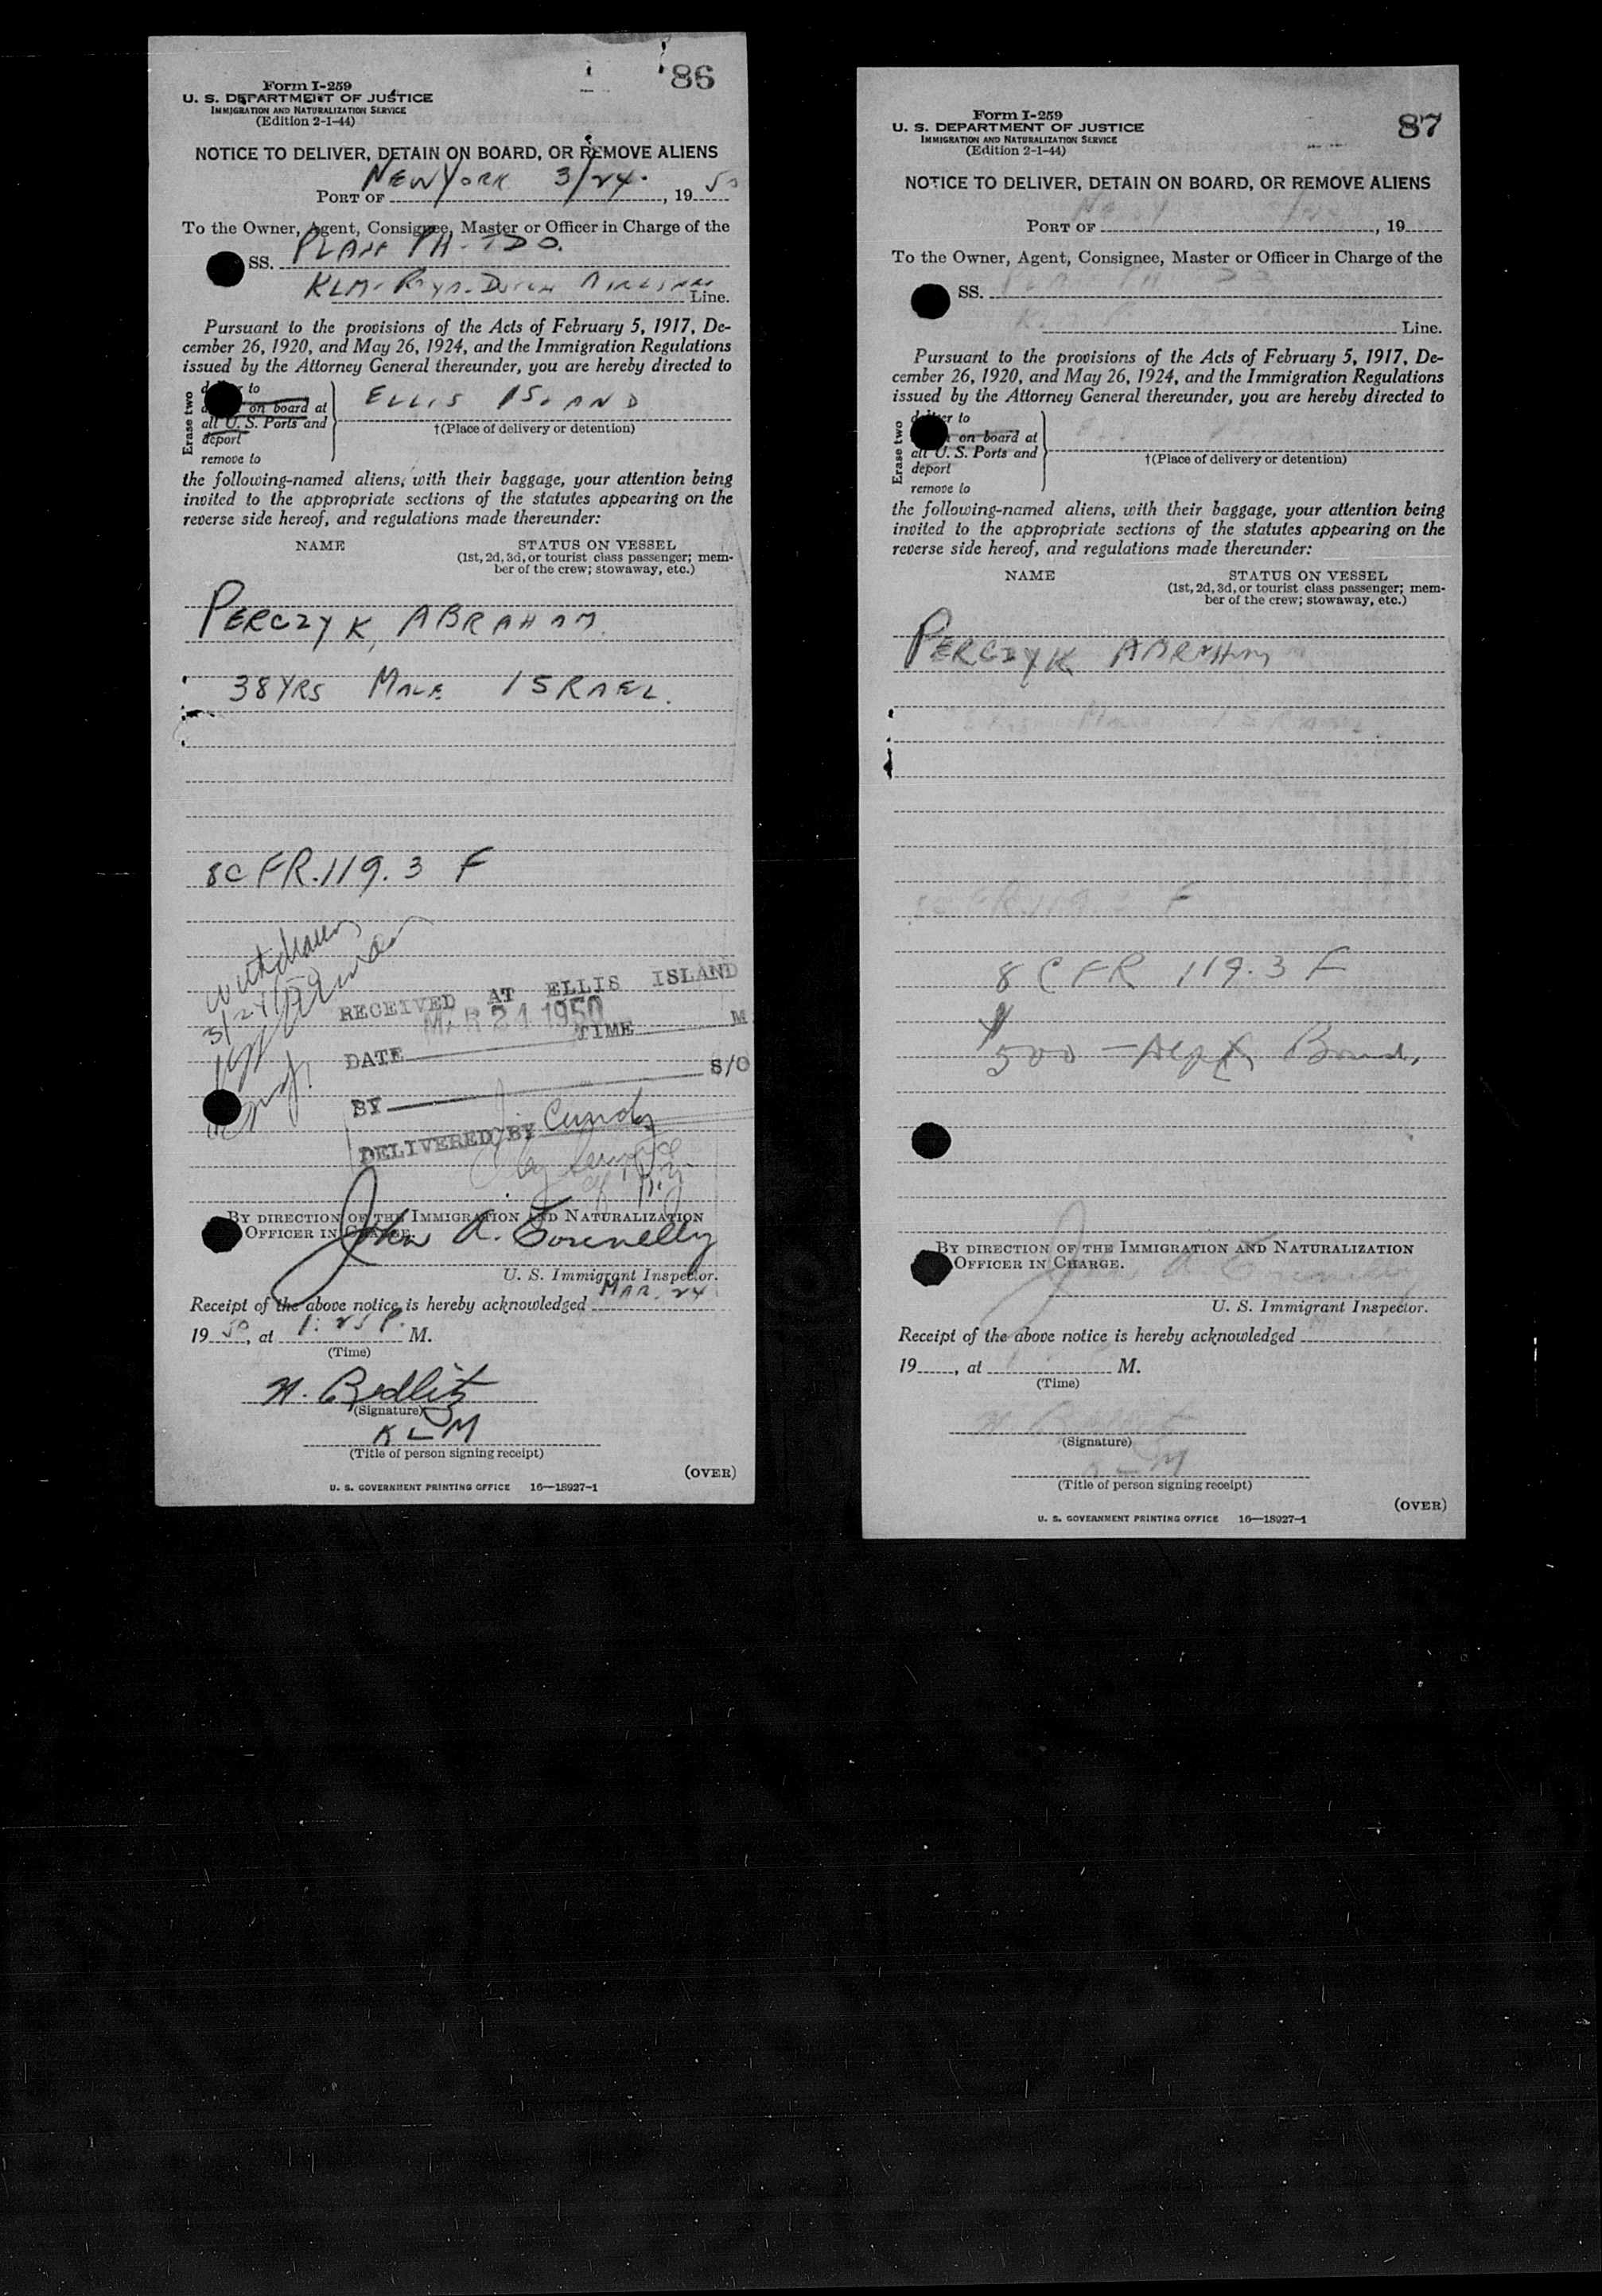 86
Form I-259
U. S. DEPARTMENT OF JUSTICE
IMMIGRATION AND NATURALIZATION SERVICE
(Edition 2-1-44)
NOTICE TO DELIVER, DETAIN ON BOARD, OR REMOVE ALIENS
PORT OF NEW YORK 3/24, 1950
To the Owner, Agent, Consignee, Master or Officer in Charge of the
SS. PLANE PH-TDO.
KLM- Royal Dutch AIRLINES Line.
Pursuant to the provisions of the Acts of February 5, 1917, De-
cember 26, 1920, and May 26, 1924, and the Immigration Regulations
issued by the Attorney General thereunder, you are hereby directed to
Erase two
to
on board at
all U. S. Ports and
deport
remove to
ELLIS ISLAND
†(Place of delivery or detention)
the following-named aliens, with their baggage, your attention being
invited to the appropriate sections of the statutes appearing on the
reverse side hereof, and regulations made thereunder:
NAME STATUS ON VESSEL
(1st, 2d, 3d, or tourist class passenger; mem-
ber of the crew; stowaway, etc.)
PERCZYK, ABRAHAM.
38 YRS MALE ISRAEL.
8 CFR.119.3 F
withdrawn
3/24/50
RECEIVED AT ELLIS ISLAND
MAR 24 1950
DATE TIME M
BY S/O
DELIVERED BY Cundy
BY DIRECTION OF THE IMMIGRATION AND NATURALIZATION
OFFICER IN CHARGE.
John A. Connelly
U. S. Immigrant Inspector.
Receipt of the above notice is hereby acknowledged MAR. 24
1950, at 1:25 P. M.
(Time)
(Signature)
KLM
(Title of person signing receipt)
(OVER)
U. S. GOVERNMENT PRINTING OFFICE 16—18927-1
87
Form I-259
U. S. DEPARTMENT OF JUSTICE
IMMIGRATION AND NATURALIZATION SERVICE
(Edition 2-1-44)
NOTICE TO DELIVER, DETAIN ON BOARD, OR REMOVE ALIENS
PORT OF , 19
To the Owner, Agent, Consignee, Master or Officer in Charge of the
SS.
Line.
Pursuant to the provisions of the Acts of February 5, 1917, De-
cember 26, 1920, and May 26, 1924, and the Immigration Regulations
issued by the Attorney General thereunder, you are hereby directed to
Erase two
deliver to
on board at
all U. S. Ports and
deport
remove to
†(Place of delivery or detention)
the following-named aliens, with their baggage, your attention being
invited to the appropriate sections of the statutes appearing on the
reverse side hereof, and regulations made thereunder:
NAME STATUS ON VESSEL
(1st, 2d, 3d, or tourist class passenger; mem-
ber of the crew; stowaway, etc.)
PERCZYK ABRAHAM
38 YRS MALE ISRAEL.
8 CFR.119.3 F
8 CFR 119.3 F
$500 — Dept Bond.
BY DIRECTION OF THE IMMIGRATION AND NATURALIZATION
OFFICER IN CHARGE.
John A. Connelly
U. S. Immigrant Inspector.
Receipt of the above notice is hereby acknowledged
19, at M.
(Time)
(Signature)
KLM
(Title of person signing receipt)
(OVER)
U. S. GOVERNMENT PRINTING OFFICE 16—18927-1